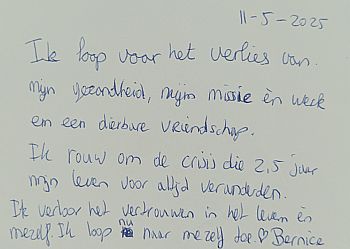 11-5-2025
Ik loop voor het verlies van.
mijn gezondheid, mijn missie èn werk
em een dierbare vriendschap.
Ik rouw om de crisis die 2,5 jaar
mijn leven voor altijd veranderden.
Ik verloor het vertrouwen in het leven èn
mezelf. Ik loop nu naar mezelf toe. ♡ Bernice